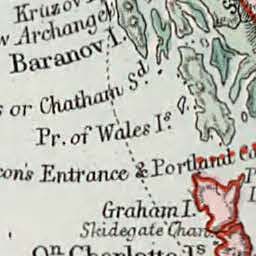 Kruzov
w Archangel
Baranov I.
s or Chatham Sd.
Pr. of Wales Is.
con's Entrance & Portland Ca
Graham I.
Skidegate Chan.
Qn. Charlotte Is